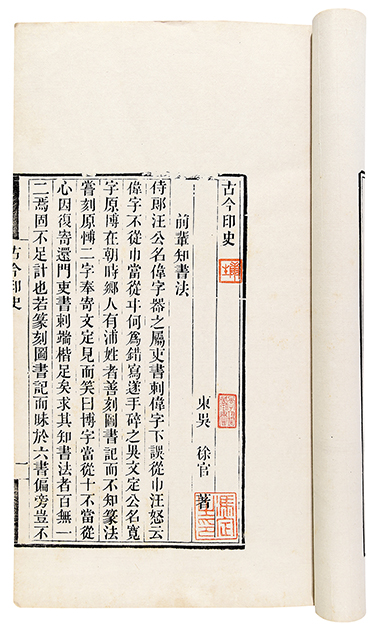 古今印史
東吳 徐官 著
前輩知書法
侍郎汪公名偉字器之屬吏書刺偉字下誤從巾汪怒云
偉字不從巾當從㐄何爲錯寫遂手碎之吳文定公名寬
字原博在朝時鄉人有浦姓者善刻圖書記而不知篆法
嘗刻原愽二字奉寄文定見而笑曰博字當從十不當從
心因復寄還門吏書刺端楷足矣求其知書法者百無一
二焉固不足計也若篆刻圖書記而昧於六書偏旁豈不
古今印史
一